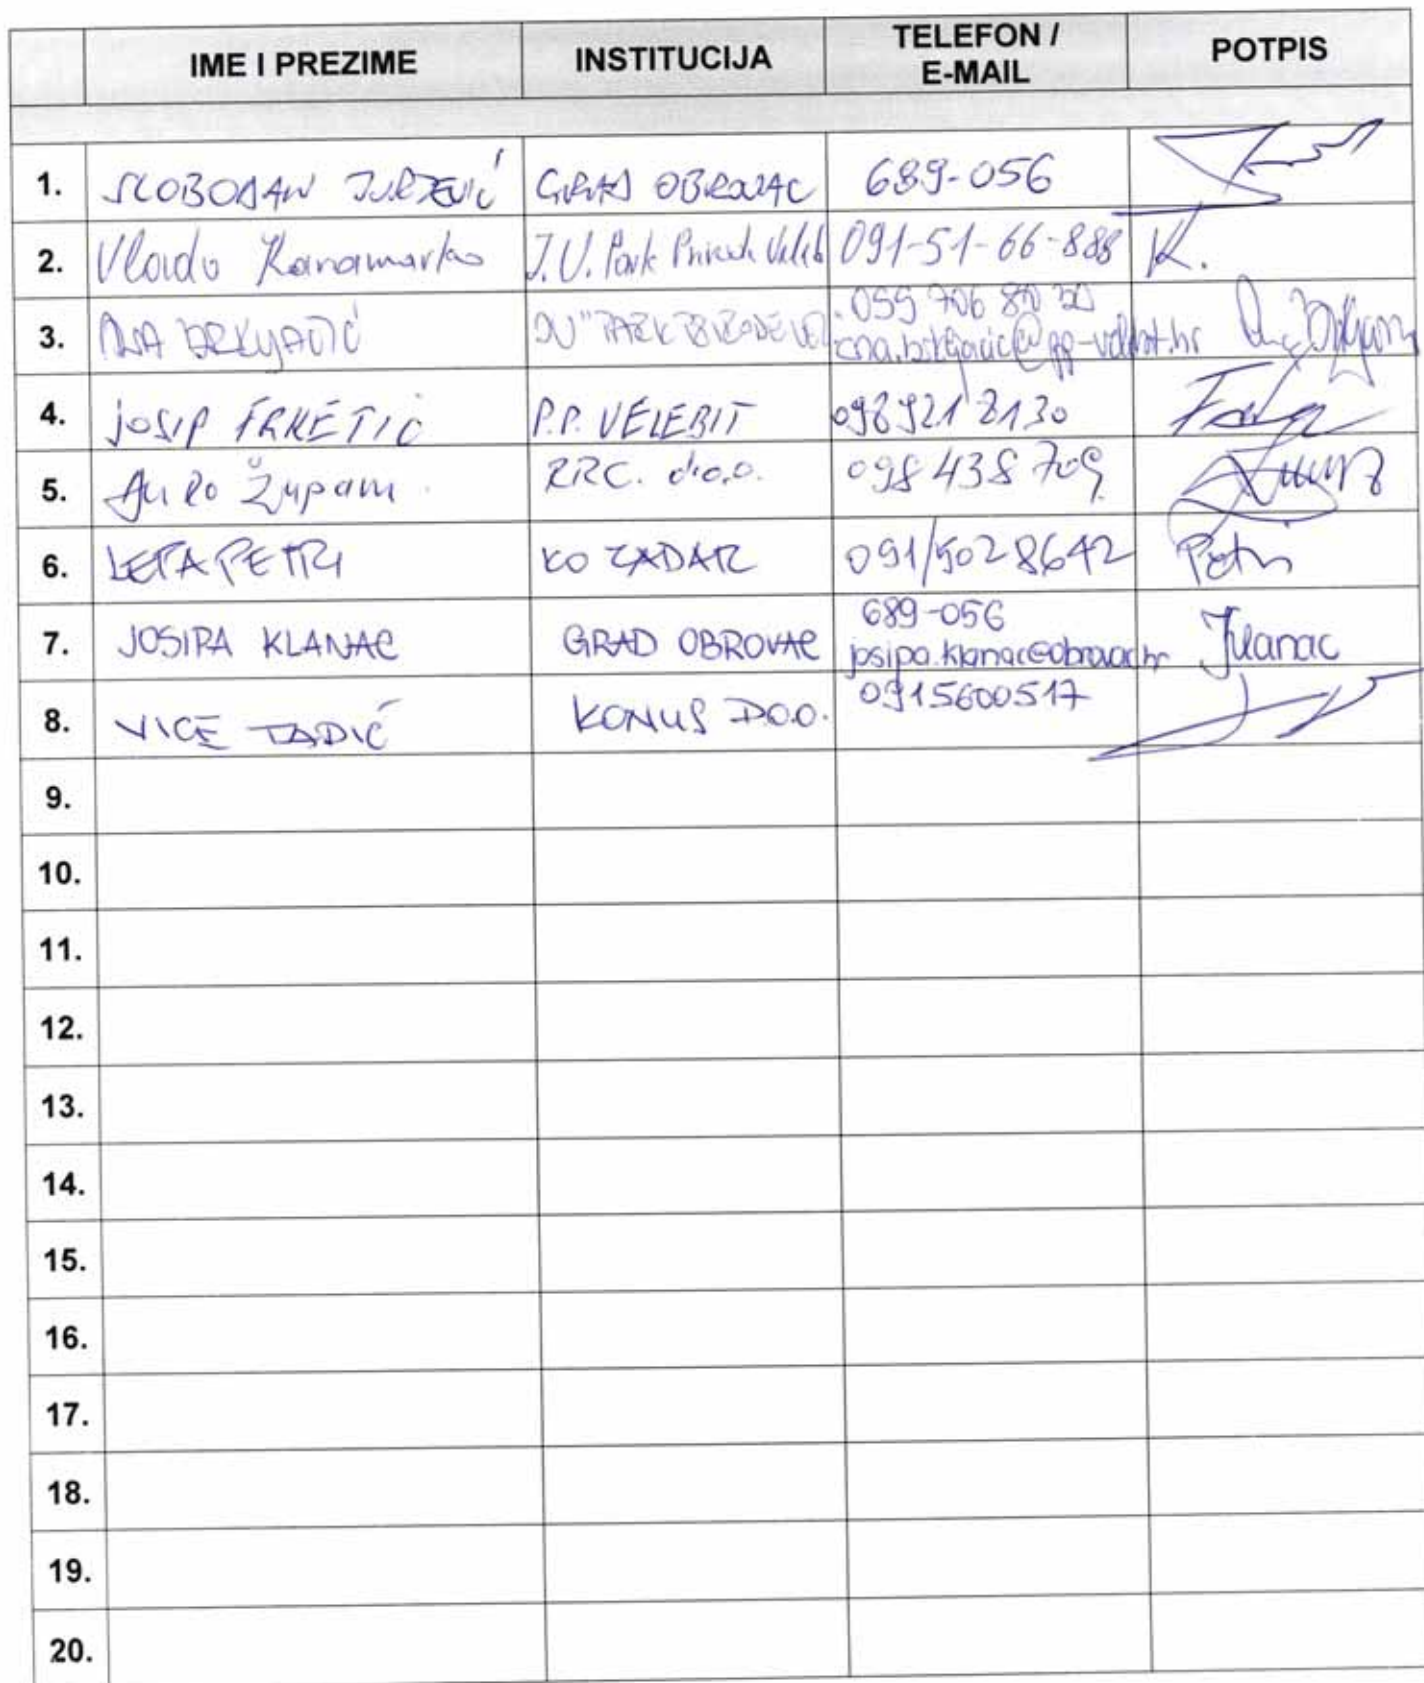 IME I PREZIME INSTITUCIJA TELEFON / E-MAIL POTPIS
1. SLOBODAN GRAD OBROVAC 689-056
2. Vlado J.U. Park 091-51-66-888 K.
3. ANA BRKLJAČIĆ JU "PARK PRIRODE 099 706 80
4. JOSIP FRKETIĆ P.P. VELEBIT 098 921 2130
5. Župan RRC. d.o.o. 098 438 709
6. PETRI KO ZADAR 091/5028642 Petri
7. JOSIPA KLANAC GRAD OBROVAC 689-056
josipa.klanac@obrovac.hr JKlanac
8. VICE TADIĆ KONUS D.O.O. 0915600517
9.
10.
11.
12.
13.
14.
15.
16.
17.
18.
19.
20.